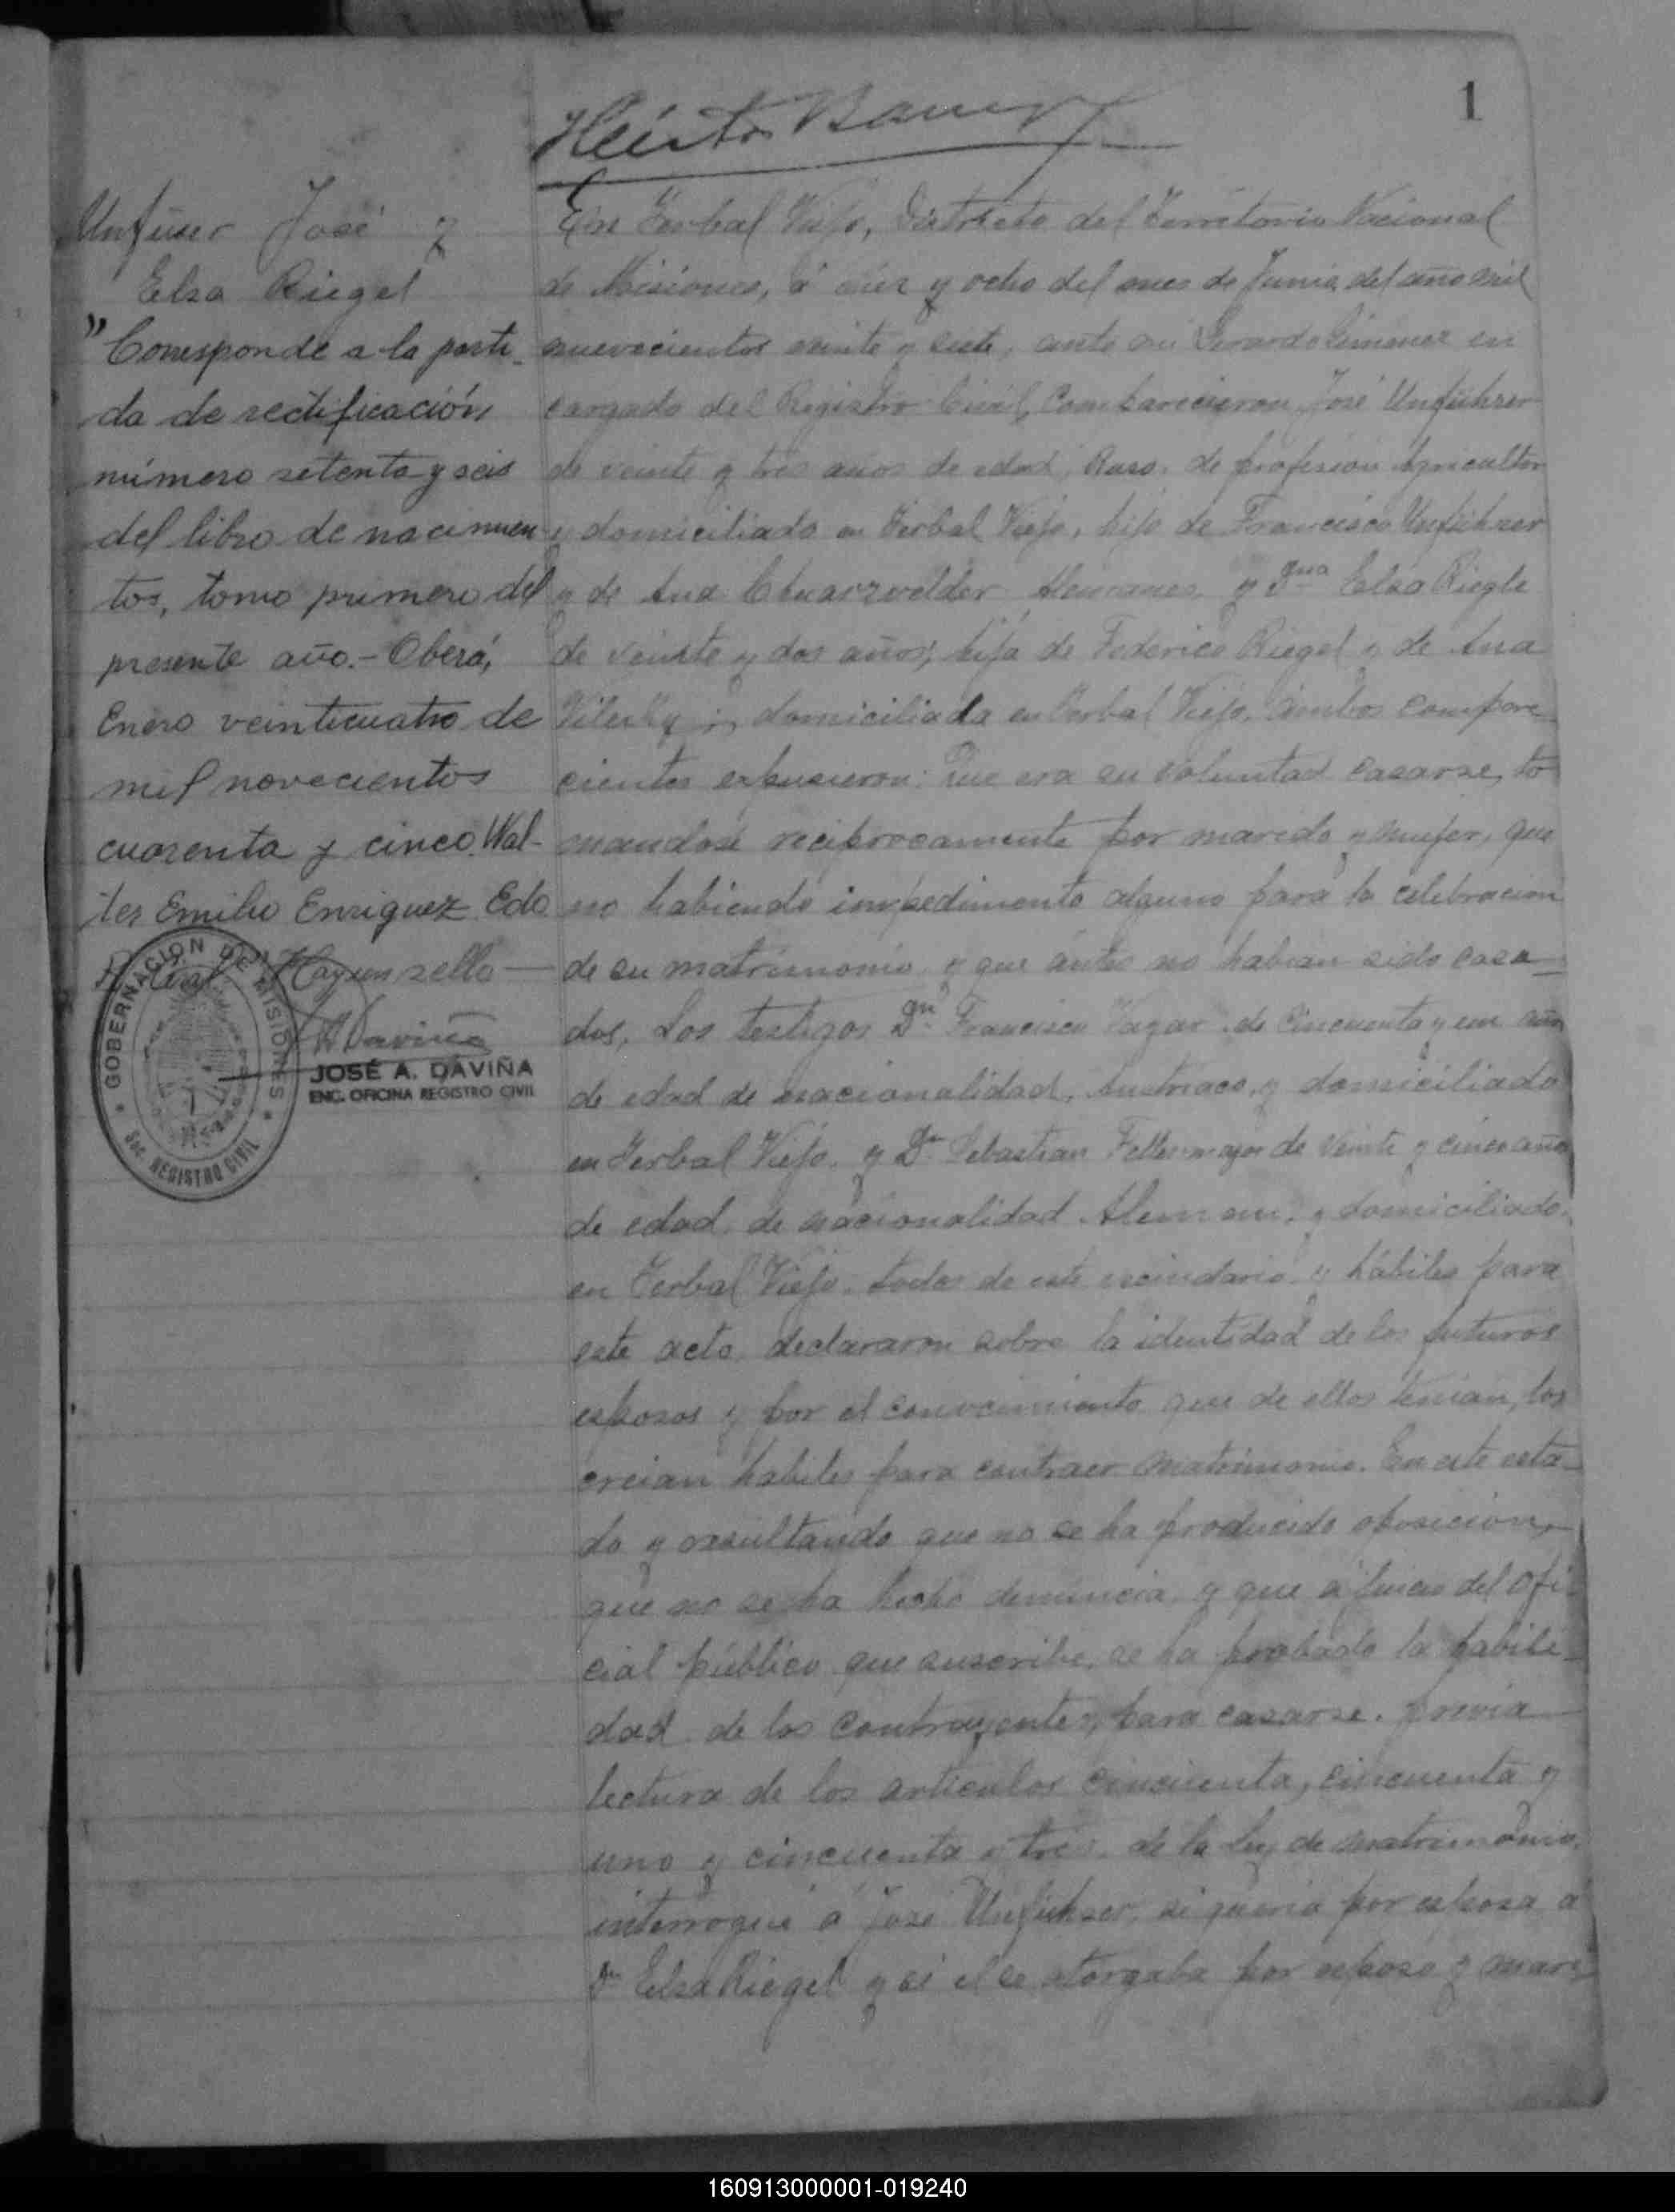 1
Unfuser José y
Elsa Riegel
"Corresponde a la parti-
da de rectificación
número setenta y seis
del libro de nacimien-
tos, tomo primero del
presente año.- Oberá,
Enero veinticuatro de
mil novecientos
cuarenta y cinco. Wal-
ter Emilio Enriquez Edo
R. Civil Hay un sello —
GOBERNACIÓN DE MISIONES
Sec. REGISTRO CIVIL
JOSÉ A. DAVIÑA
ENC. OFICINA REGISTRO CIVIL
En Yerbal Viejo, Distrito del Territorio Nacional
de Misiones, á diez y ocho del mes de Junio, del año mil
nuevecientos veinte y siete, ante mi Gerardo Gimenez en
cargado del Registro Civil, Comparecieron, José Unfühser
de veinte y tres años de edad, Ruso, de profesión Agricultor
y domiciliado en Yerbal Viejo, hijo de Francisco Unfühser
y de Ana Alemanes, y Dña Elsa Riegle
de veinte y dos años, hija de Federico Riegel y de Ana
domiciliada en Yerbal Viejo, ambos compare
cientes expusieron: Que era su voluntad casarse, to
mandose reciprocamente por marido y mujer, que
no habiendo impedimento alguno para la celebracion
de su matrimonio y que antes no habian sido casa-
dos, Los testigos Dn Francisco de Cincuenta y un año
de edad de nacionalidad, Austriaco, y domiciliado
en Yerbal Viejo, y Dn Sebastian de veinte y cinco año
de edad, de nacionalidad Aleman, y domiciliado
en Yerbal Viejo, todos de este vecindario y hábiles para
este acto, declararon sobre la identidad de los futuros
esposos y por el conocimiento que de ellos tenian, los
creian habiles para contraer matrimonio. En este esta-
do y resultando que no se ha producido oposicion,
que no se ha hecho denuncia, y que a juicio del ofi-
cial público que suscribe, se ha probado la habili-
dad de los contrayentes, para casarse. previa
lectura de los articulos cincuenta, cincuenta y
uno y cincuenta y tres, de la Ley de matrimonio,
interrogué á José Unfühser, si queria por esposa á
Dña Elsa Riegel y si el se otorgaba por esposo y mari-
160913000001-019240